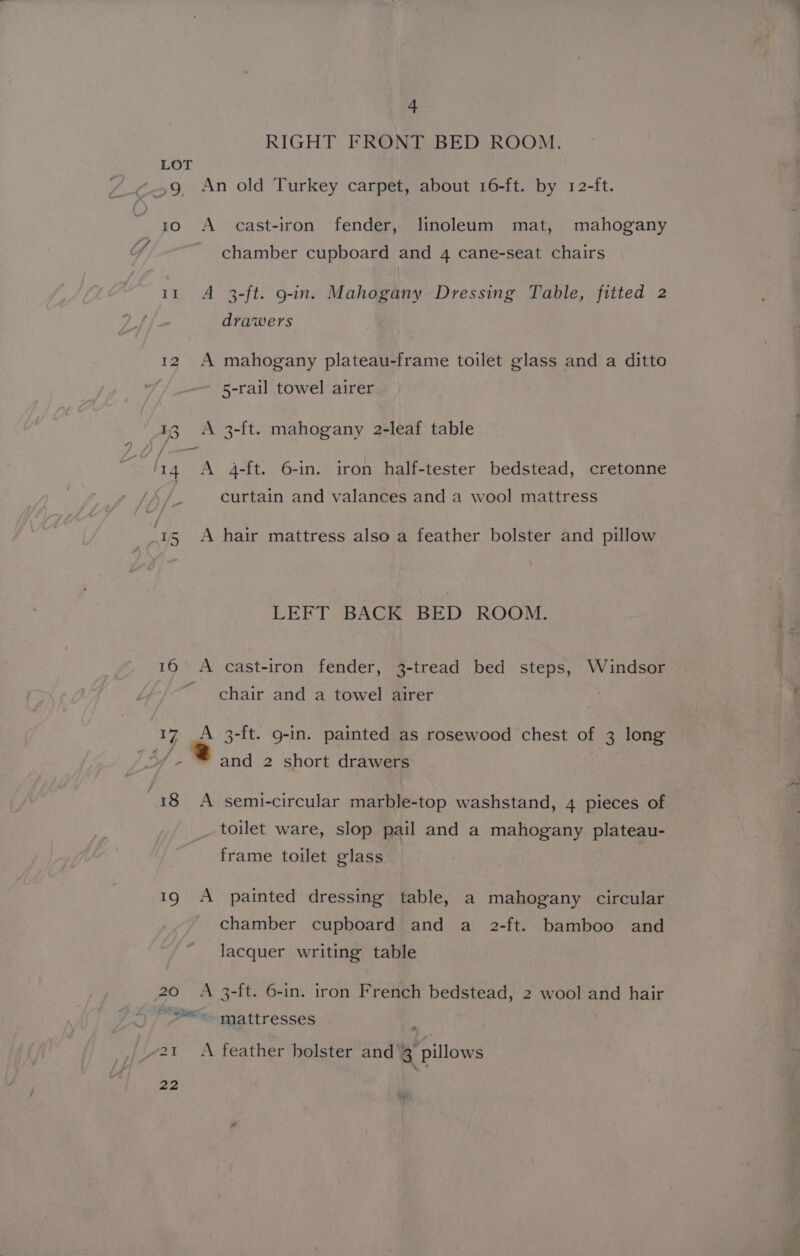 4
RIGHT FRONT BED ROOM.
LOT
9 An old Turkey carpet, about 16-ft. by 12-ft.
10 A cast-iron fender, linoleum mat, mahogany
chamber cupboard and 4 cane-seat chairs
11 A 3-ft. 9-in. Mahogany Dressing Table, fitted 2
drawers
12 A mahogany plateau-frame toilet glass and a ditto
5-rail towel airer
13 A 3-ft. mahogany 2-leaf table
14 A 4-ft. 6-in. iron half-tester bedstead, cretonne
curtain and valances and a wool mattress
15 A hair mattress also a feather bolster and pillow
LEFT BACK BED ROOM.
16 A cast-iron fender, 3-tread bed steps, Windsor
chair and a towel airer
17 A 3-ft. 9-in. painted as rosewood chest of 3 long
and 2 short drawers
18 A semi-circular marble-top washstand, 4 pieces of
toilet ware, slop pail and a mahogany plateau-
frame toilet glass
19 A painted dressing table, a mahogany circular
chamber cupboard and a 2-ft. bamboo and
lacquer writing table
20 A 3-ft. 6-in. iron French bedstead, 2 wool and hair
mattresses
21 A feather bolster and 3 pillows
22